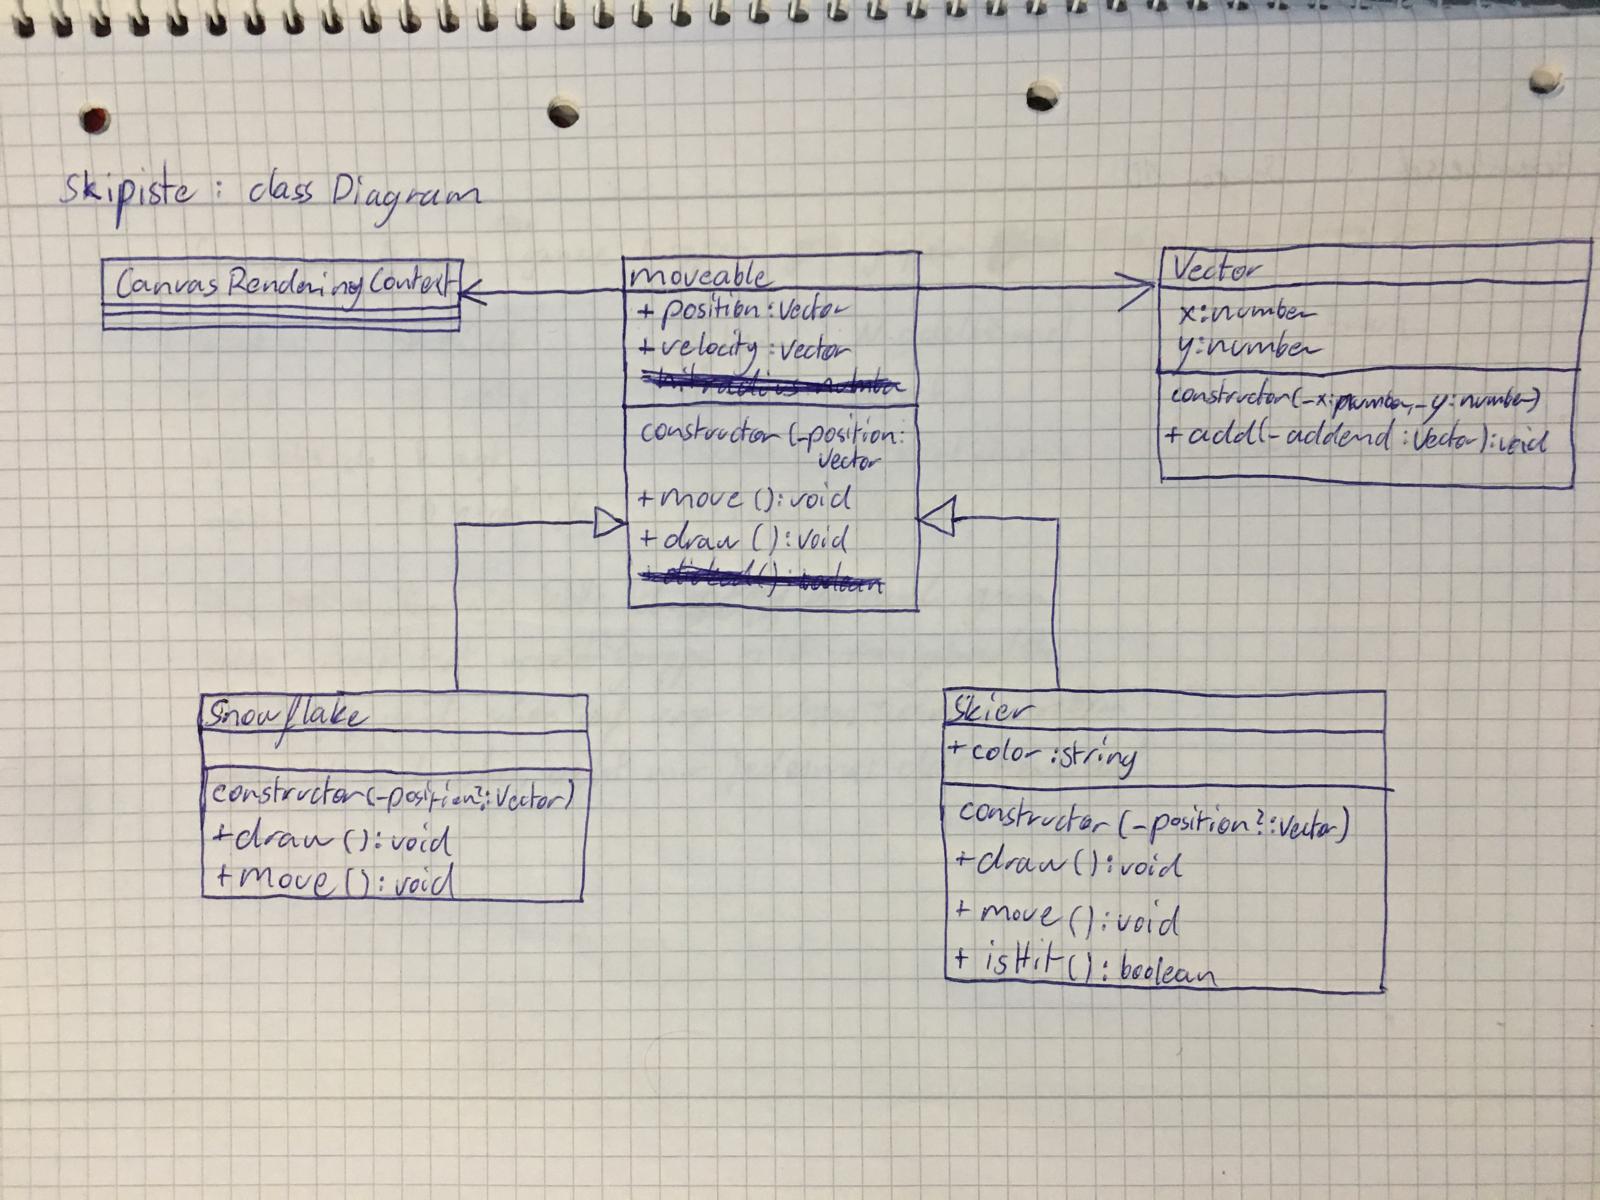 Skipiste : class Diagram
CanvasRenderingContext
moveable
+ position : Vector
+ velocity : Vector
constructor (_position:
Vector
+ move () : void
+ draw () : void
Vector
x : number
y : number
constructor(_x:number, _y:number)
+ add(_addend : Vector) : void
Snowflake
constructor(_position? : Vector)
+ draw () : void
+ move () : void
Skier
+ color : string
constructor (_position? : Vector)
+ draw () : void
+ move () : void
+ isHit () : boolean